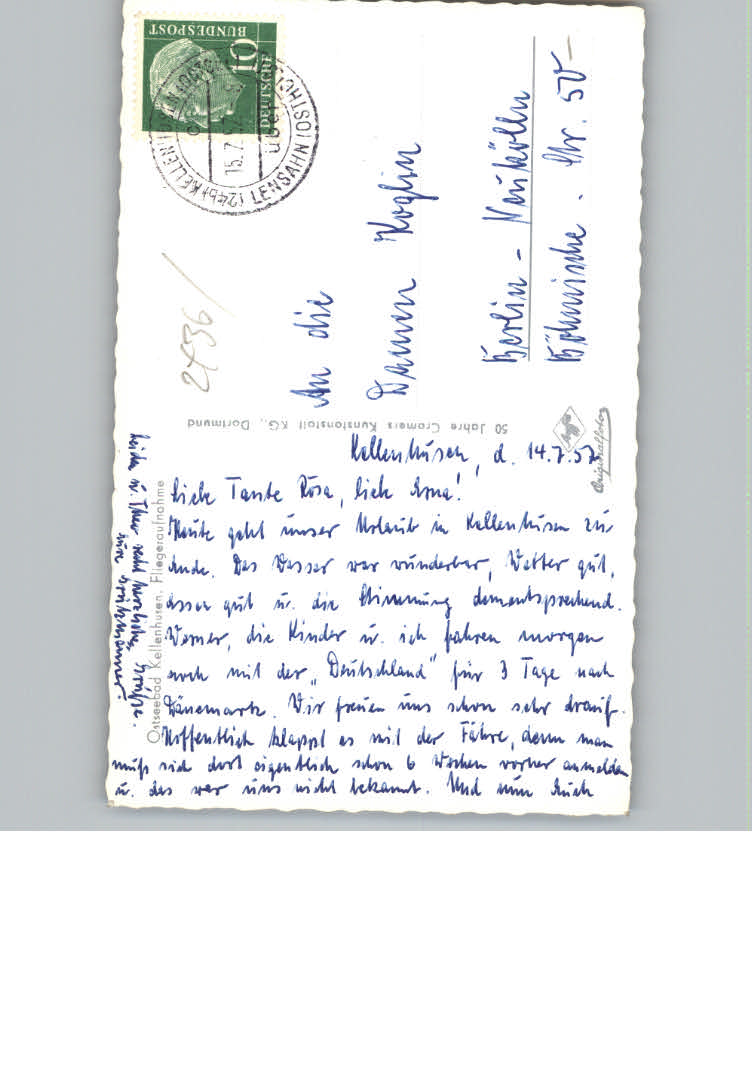 Kellenhusen, d. 14.7.57
Liebe Tante Rosa, lieb Erna!
Heute geht unser Urlaub in Kellenhusen zu
Ende. Das Wasser war wunderbar, Wetter gut,
Essen gut u. die Stimmung dementsprechend.
Werner, die Kinder u. ich fahren morgen
noch mit der „Deutschland" für 3 Tage nach
Dänemark. Wir freuen uns schon sehr drauf.
Hoffentlich klappt es mit der Fähre, denn man
muß sich dort eigentlich schon 6 Wochen vorher anmelden
u. das war uns nicht bekannt. Und nun Euch
beiden u. Theo recht herzliche Grüße.
Eure
An die
Damen Koglin
Berlin - Neukölln
Böhmische - Str. 50
2436/
Ostseebad Kellenhusen. Fliegeraufnahme
50 Jahre Cramers Kunstanstalt KG., Dortmund
Agfa
Originalfoto
DEUTSCHE
BUNDESPOST
10
(24b) KELLENHUSEN
über LENSAHN (OSTHOLST)
15.7.57